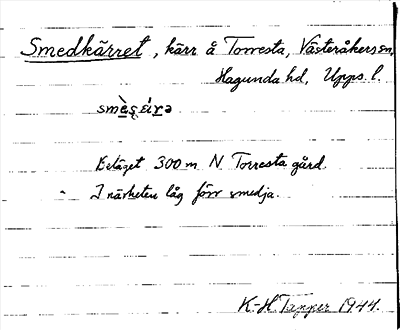 Smedkärret, kärr å Torresta, Västeråkers sn,
Hagunda hd, Upps. l.
Beläget 300 m N Torresta gård.
I närheten låg förr smedja.
K-H. Tapper 1944.